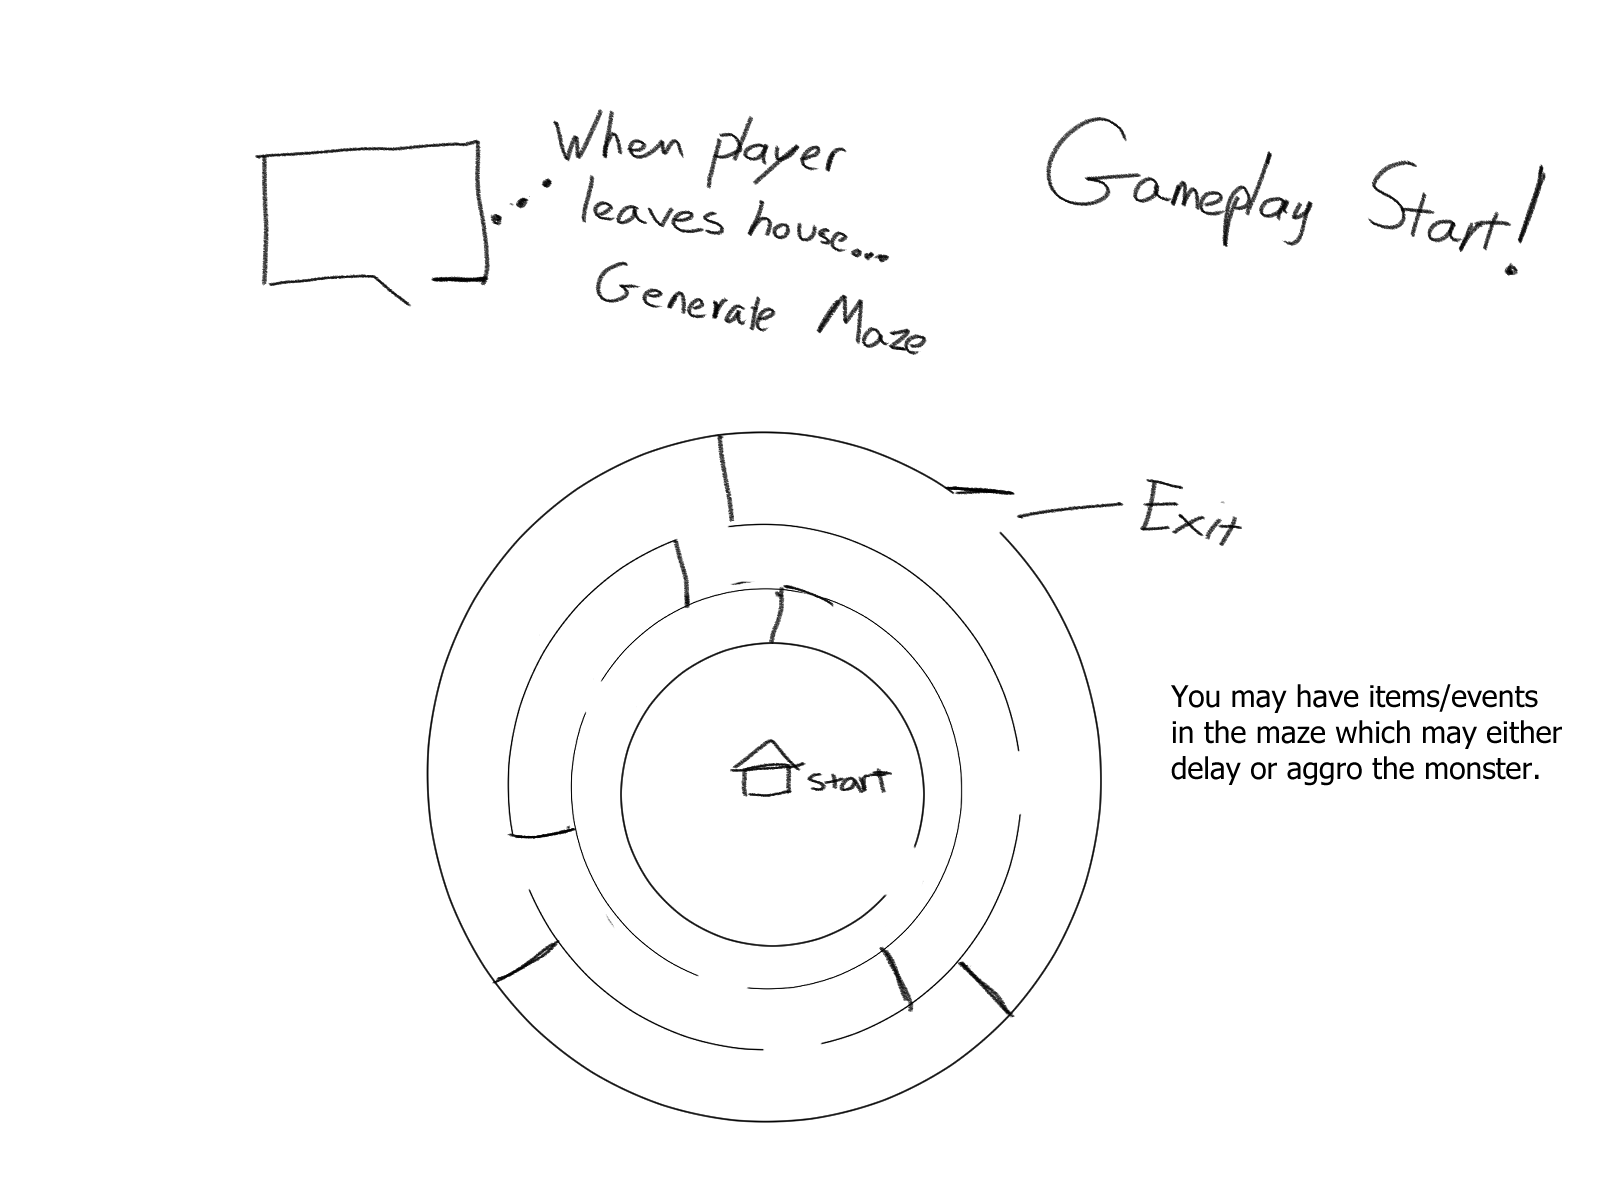 When player
leaves house...
Generate Maze
Gameplay Start!
Exit
start
You may have items/events
in the maze which may either
delay or aggro the monster.